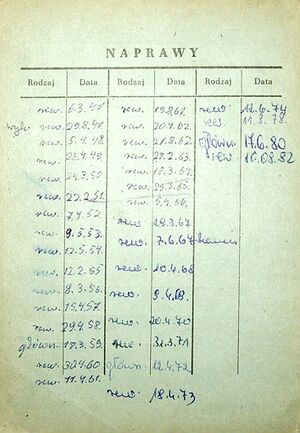 NAPRAWY
Rodzaj Data Rodzaj Data Rodzaj Data
rew. 6.3.47 rew. rew. 12.6.74
rew. 29.8.47 rew. 20.4.62. rew. 11.8.78
rew. 5.4.48 rew. 21.8.62 główn. 17.6.80
rew. rew. 27.2.63. rew 16.08.82
rew. 24.3.50 rew.
rew. 22.2.51. rew. 29.3.65.
rew. 7.4.52 rew. 5.4.66.
rew. 9.5.53 rew. 24.3.67
rew. 12.5.54. rew. 7.6.67
rew. 12.2.55 rew. 10.4.68
rew. 8.3.56. rew. 9.4.69.
rew. 15.4.57
rew. 29.4.58. rew. 20.4.70
główn. 18.3.59 rew. 31.3.71
rew. 30.4.60 główn 12.4.72
rew. 11.4.61. rew. 18.4.73